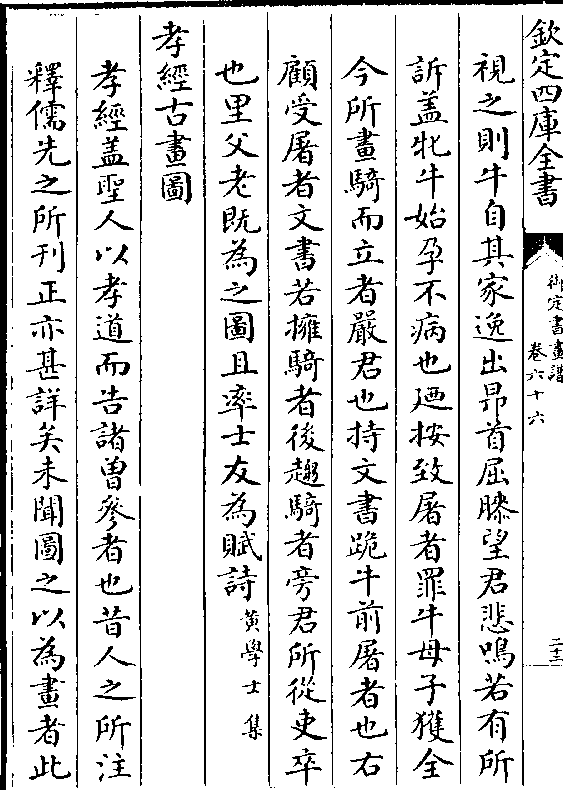 欽定四庫全書
御定書畫譜
卷六十六
二十二
視之則牛自其家逸出昂首屈膝望君悲鳴若有所
訴盖牝牛始孕不病也廼按致屠者罪牛母子獲全
今所畫騎而立者嚴君也持文書跪牛前屠者也右
顧受屠者文書若擁騎者後趨騎者旁君所從吏卒
也里父老既為之圖且率士友為賦詩黄學士集
孝經古畫圖
孝經盖聖人以孝道而告諸曽參者也昔人之所注
釋儒先之所刋正亦甚詳矣未聞圖之以為畫者此